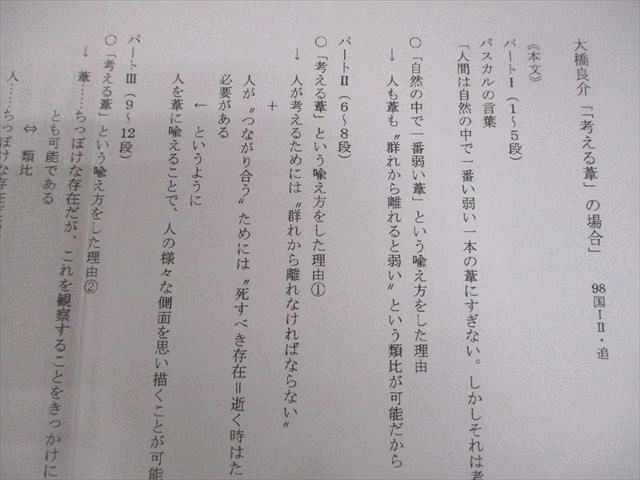 大橋良介「「考える葦」の場合」　98国ⅠⅡ・追
《本文》
パートⅠ（1～5段）
パスカルの言葉
「人間は自然の中で一番弱い一本の葦にすぎない。しかしそれは考
○「自然の中で一番弱い葦」という喩え方をした理由
→ 人も葦も〝群れから離れると弱い〟という類比が可能だから
パートⅡ（6～8段）
○「考える葦」という喩え方をした理由①
→ 人が考えるためには〝群れから離れなければならない〟
＋
人が〝つながり合う〟ためには〝死すべき存在＝逝く時はた
必要がある
← というように
人を葦に喩えることで、人の様々な側面を思い描くことが可能
パートⅢ（9～12段）
○「考える葦」という喩え方をした理由②
→ 葦……ちっぽけな存在だが、これを観察することをきっかけに
とも可能である
⇔ 類比
人……ちっぽけな存在だが